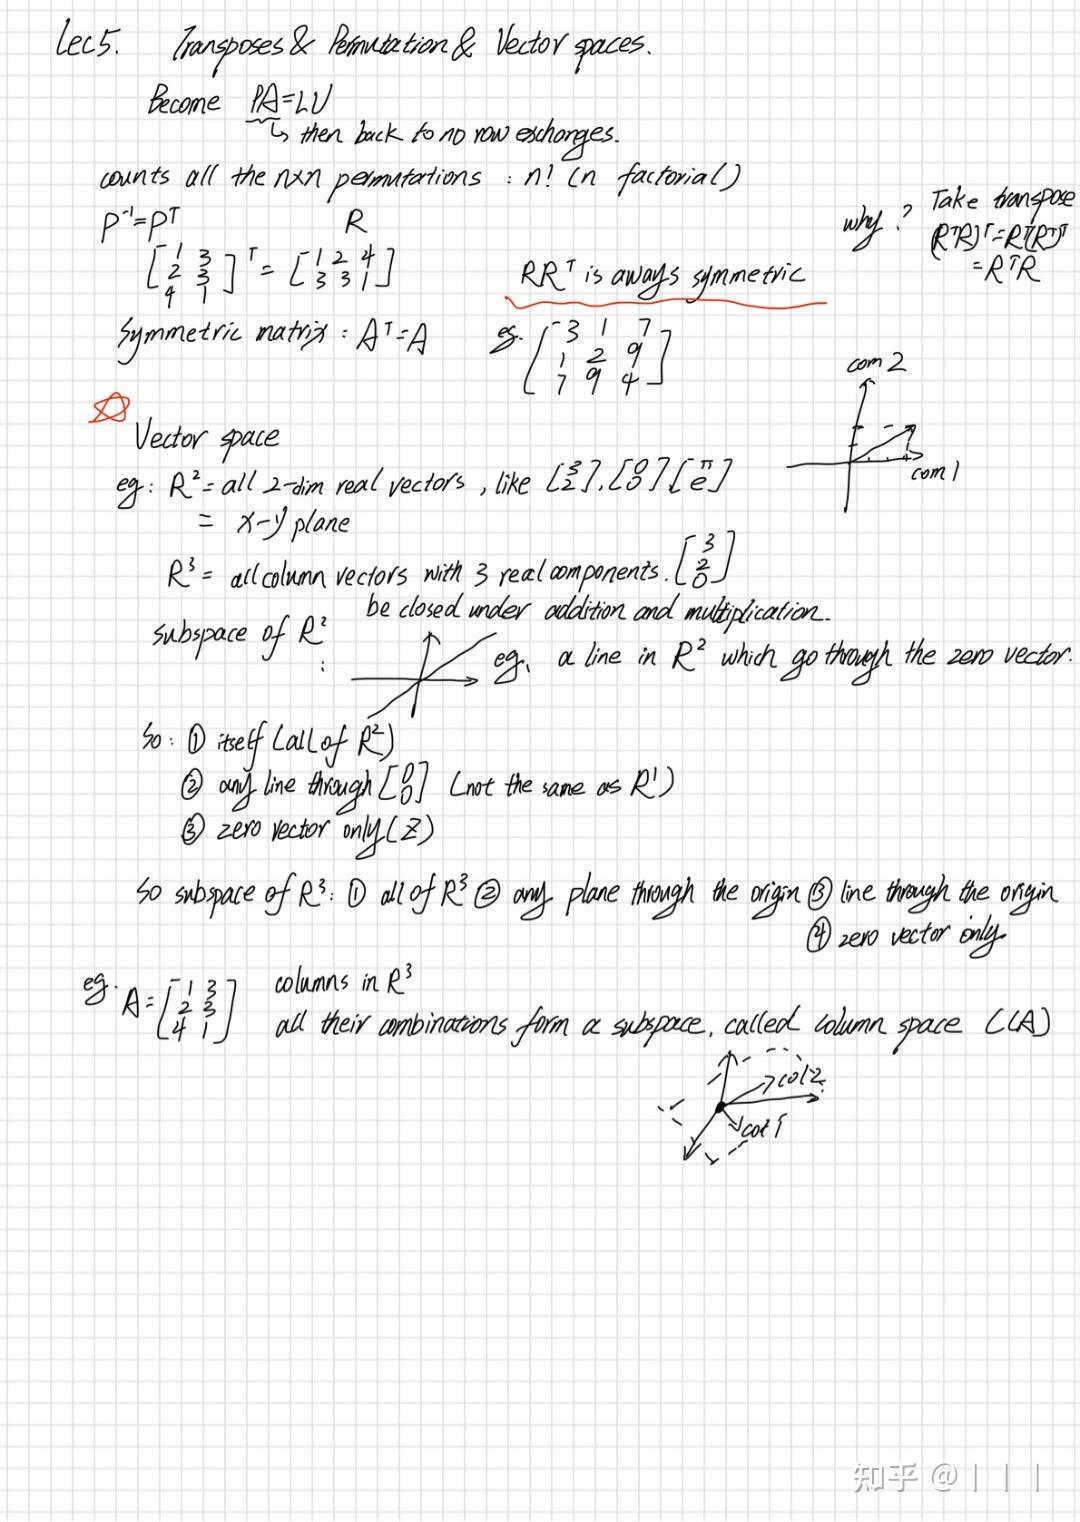 Lec5. Transposes & Permutation & Vector spaces.
Become PA=LU
↳ then back to no row exchanges.
counts all the n×n permutations : n! (n factorial)
P⁻¹=Pᵀ R
[1 3; 2 3; 4 1]ᵀ = [1 2 4; 3 3 1]
RRᵀ is aways symmetric
why? Take transpose
(RᵀR)ᵀ=Rᵀ(Rᵀ)ᵀ
=RᵀR
Symmetric matrix : Aᵀ=A eg. [3 1 7; 1 2 9; 7 9 4]
com 2
com 1
Vector space
eg: R²= all 2-dim real vectors, like [3; 2], [0; 0] [π; e]
= x-y plane
R³= all column vectors with 3 real components. [3; 2; 0]
be closed under addition and multiplication.
subspace of R² :
eg, a line in R² which go through the zero vector.
So: ① itself (all of R²)
② any line through [0; 0] (not the same as R¹)
③ zero vector only (Z)
So subspace of R³: ① all of R³ ② any plane through the origin ③ line through the origin
④ zero vector only.
eg. A=[1 3; 2 3; 4 1] columns in R³
all their combinations form a subspace, called column space C(A)
col2
col 1
知乎 @丨丨丨